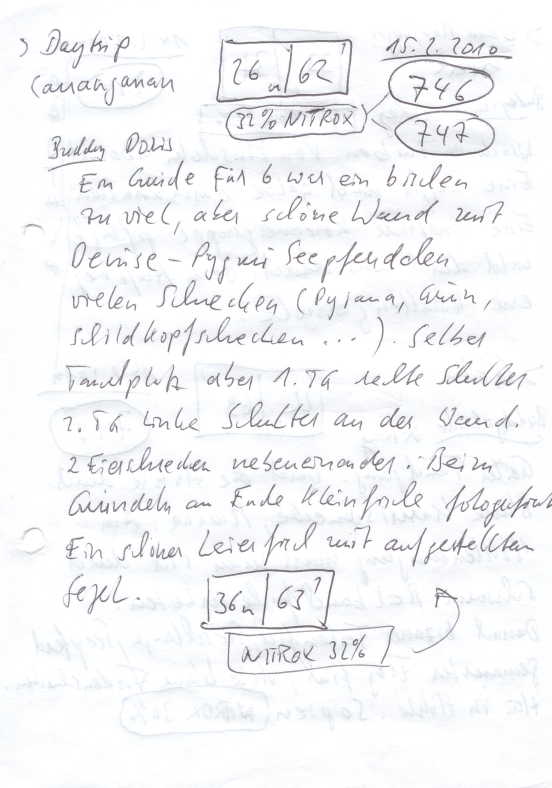 Daytrip
Cananganan
26m 62'
15.2.2010
32% NITROX
746
747
Buddy Doris
Ein Guide für 6 war ein bischen
zu viel, aber schöne Wand mit
Denise-Pygmi Seepferdchen
vielen Schnecken (Pyjama, Grün,
Schildkopfschnecken ...). Selber
Tauchplatz aber 1. TG rechte Schulter
2. TG linke Schulter an der Wand.
2 Eierschnecken nebeneinander. Beim
Gründeln am Ende Kleinfische fotografiert
Ein schöner Leierfisch mit aufgestellten
Segel.
36m 63'
NITROX 32%